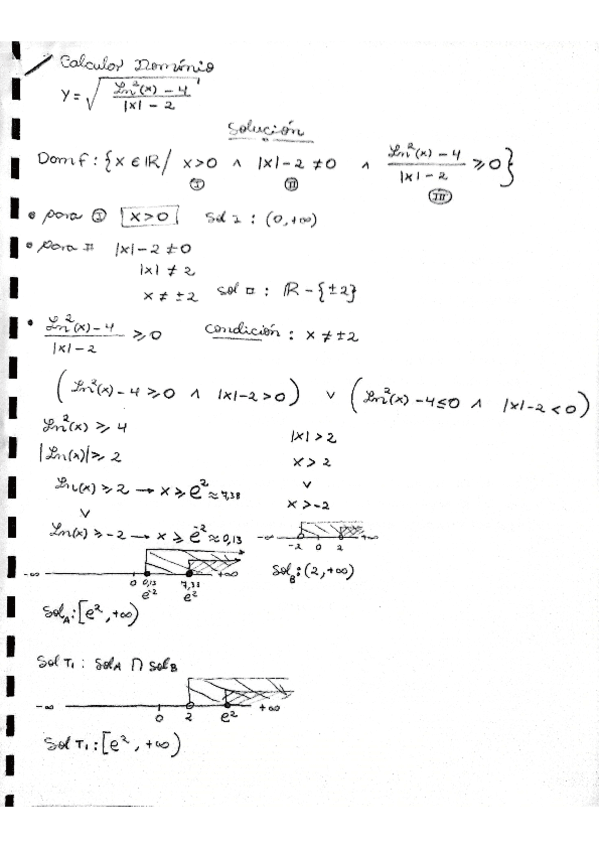 Calcular Dominio
y = √((Ln²(x) - 4) / (|x| - 2))
Solución
Domf : {x ∈ ℝ / x>0 ∧ |x|-2 ≠0 ∧ (Ln²(x) - 4) / (|x| - 2) ≥0}
I II III
• para I x>0 Sol I : (0,+∞)
• para II |x|-2 ≠0
|x| ≠ 2
x ≠ ±2 Sol II : ℝ - {±2}
• (Ln²(x) - 4) / (|x|-2) ≥0 Condición : x ≠ ±2
(Ln²(x) - 4 ≥0 ∧ |x|-2 >0) ∨ (Ln²(x) - 4 ≤0 ∧ |x|-2 <0)
Ln²(x) ≥ 4 |x| > 2
|Ln(x)| ≥ 2 x > 2
Ln(x) ≥ 2 → x ≥ e² ≈ 7,38 ∨
∨ x > -2
Ln(x) ≥ -2 → x ≥ e⁻² ≈ 0,13 -∞ -2 0 2 +∞
-∞ 0 0,13 7,38 +∞ Sol_B : (2,+∞)
e⁻² e²
Sol_A : [e² , +∞)
Sol T₁ : Sol_A ∩ Sol_B
-∞ 0 2 e² +∞
Sol T₁ : [e² , +∞)